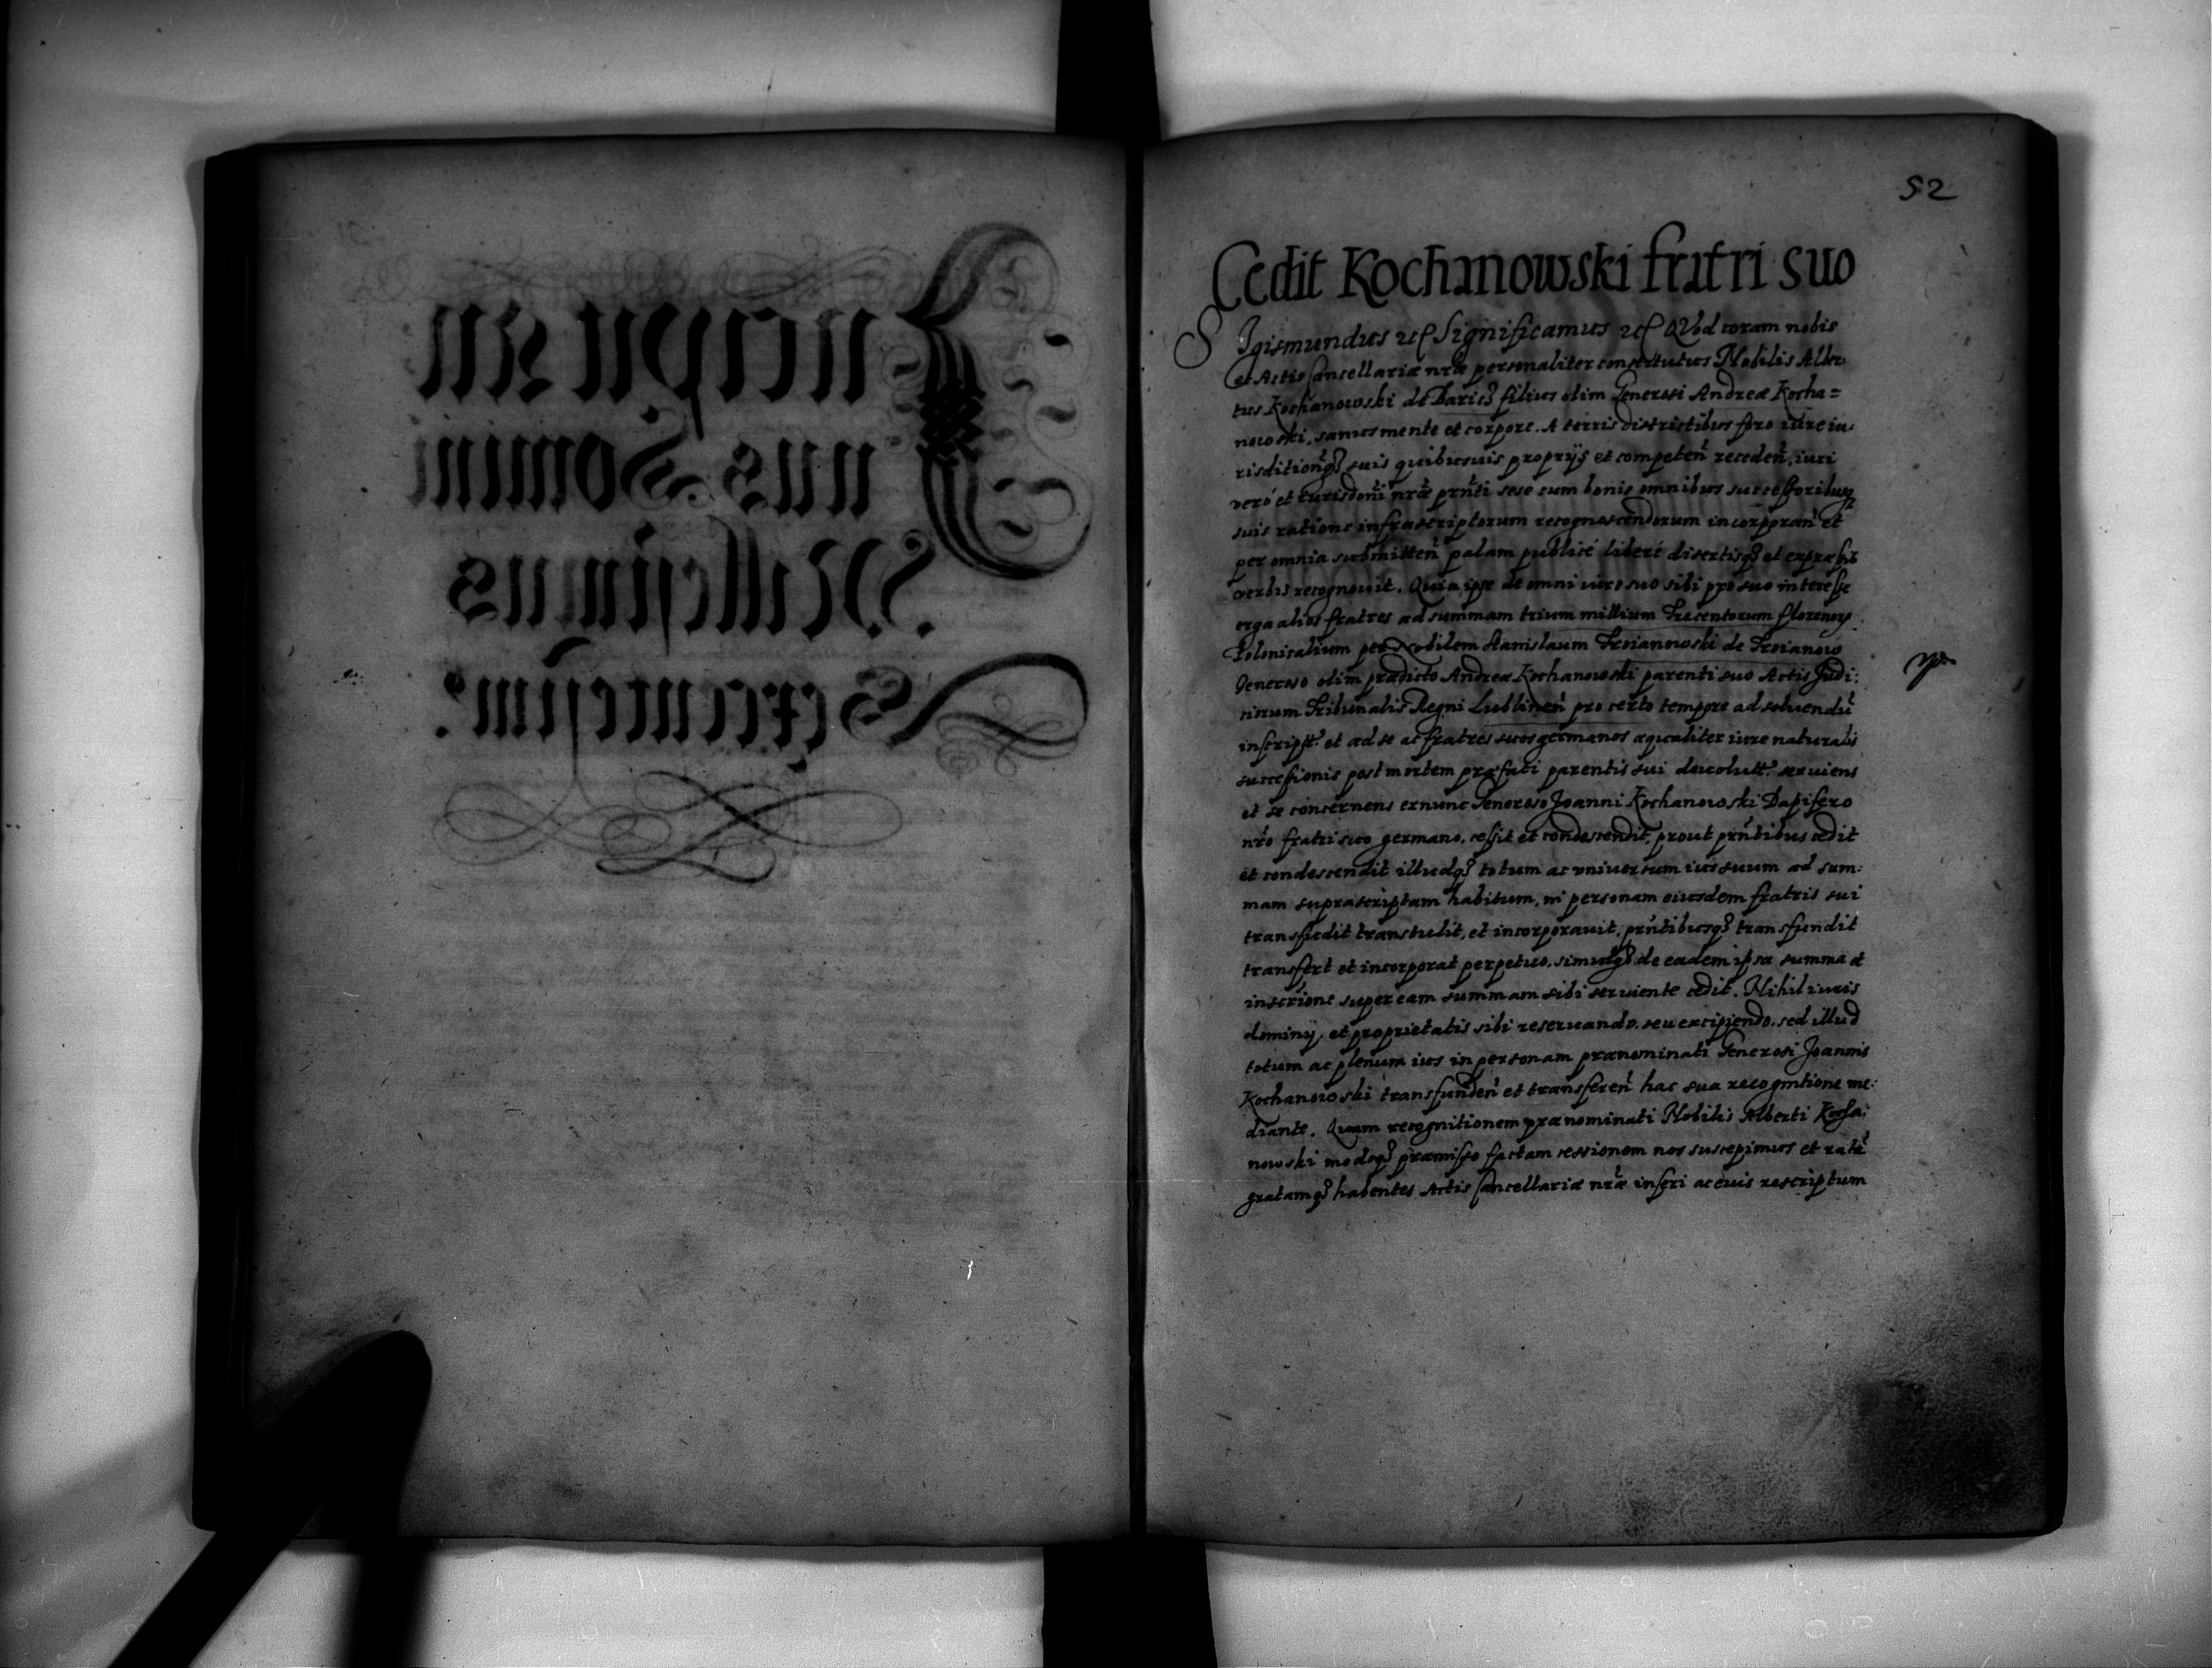 Incipit an
nus Domini
Millesimus
Sexcentesim9.
52
Cedit Kochanowski fratri suo
Sigismundus etc Significamus etc Quod coram nobis
et Actis Cancellariæ nræ personaliter constitutus Nobilis Alber
tus Kochanowski de filius olim Generosi Andreæ Kocha=
nowski, sanus mente et corpore. A terris districtibus foro iure iu
risditionqz suis quibusuis proprijs et competen̄ receden̄, iuri
vero et iurisdoni nræ pr̄nti sese cum bonis omnibus successoribusqz
suis ratione infrascriptorum recognoscendorum incorporan̄ et
per omnia submitten̄ palam publicé liberé disertisqz et expressis
verbis recognovit. Quia ipse de omni iure suo sibi pro suo interesse
erga alios fratres ad summam trium millium Trecentorum florenorz
Polonicalium per Nobilem Stanislaum Troianowski de Troianow
Generoso olim prædicto Andreæ Kochanowski parenti suo Actis Judi:
ciorum Tribunalis Regni Lublinen̄ pro certo tempore ad soluendū
inscript. et ad se ac fratres suos germanos æqualiter iure naturalis
successionis post mortem præfati parentis sui deuolutt. seruiens
et se concernens exnunc Generoso Joanni Kochanowski Dapifero
nr̄o fratri suo germano, cessit et condescendit, prout pr̄ntibus cedit
et condescendit illudqz totum ac vniuersum ius suum ad sum:
mam suprascriptam habitum, in personam eiusdem fratris sui
transfudit transtulit, et incorporauit, pr̄ntibusqz transfundit
transfert et incorporat perpetuo, simulqz de eadem ipsa summa et
inscrione super eam summam sibi seruiente cedit. Nihil iuris
dominij, et proprietatis sibi reseruando, seu excipiendo, sed illud
totum ac plenum ius in personam prænominati Generosi Joannis
Kochanowski transfunden̄ et transferen̄ hac sua recognitione me:
diante. Quam recognitionem prænominati Nobilis Alberti Kocha:
nowski modoqz præmisso factam cessionem nos suscepimus et ratā
gratamqz habentes Actis Cancellariæ nræ inseri ac eius rescriptum